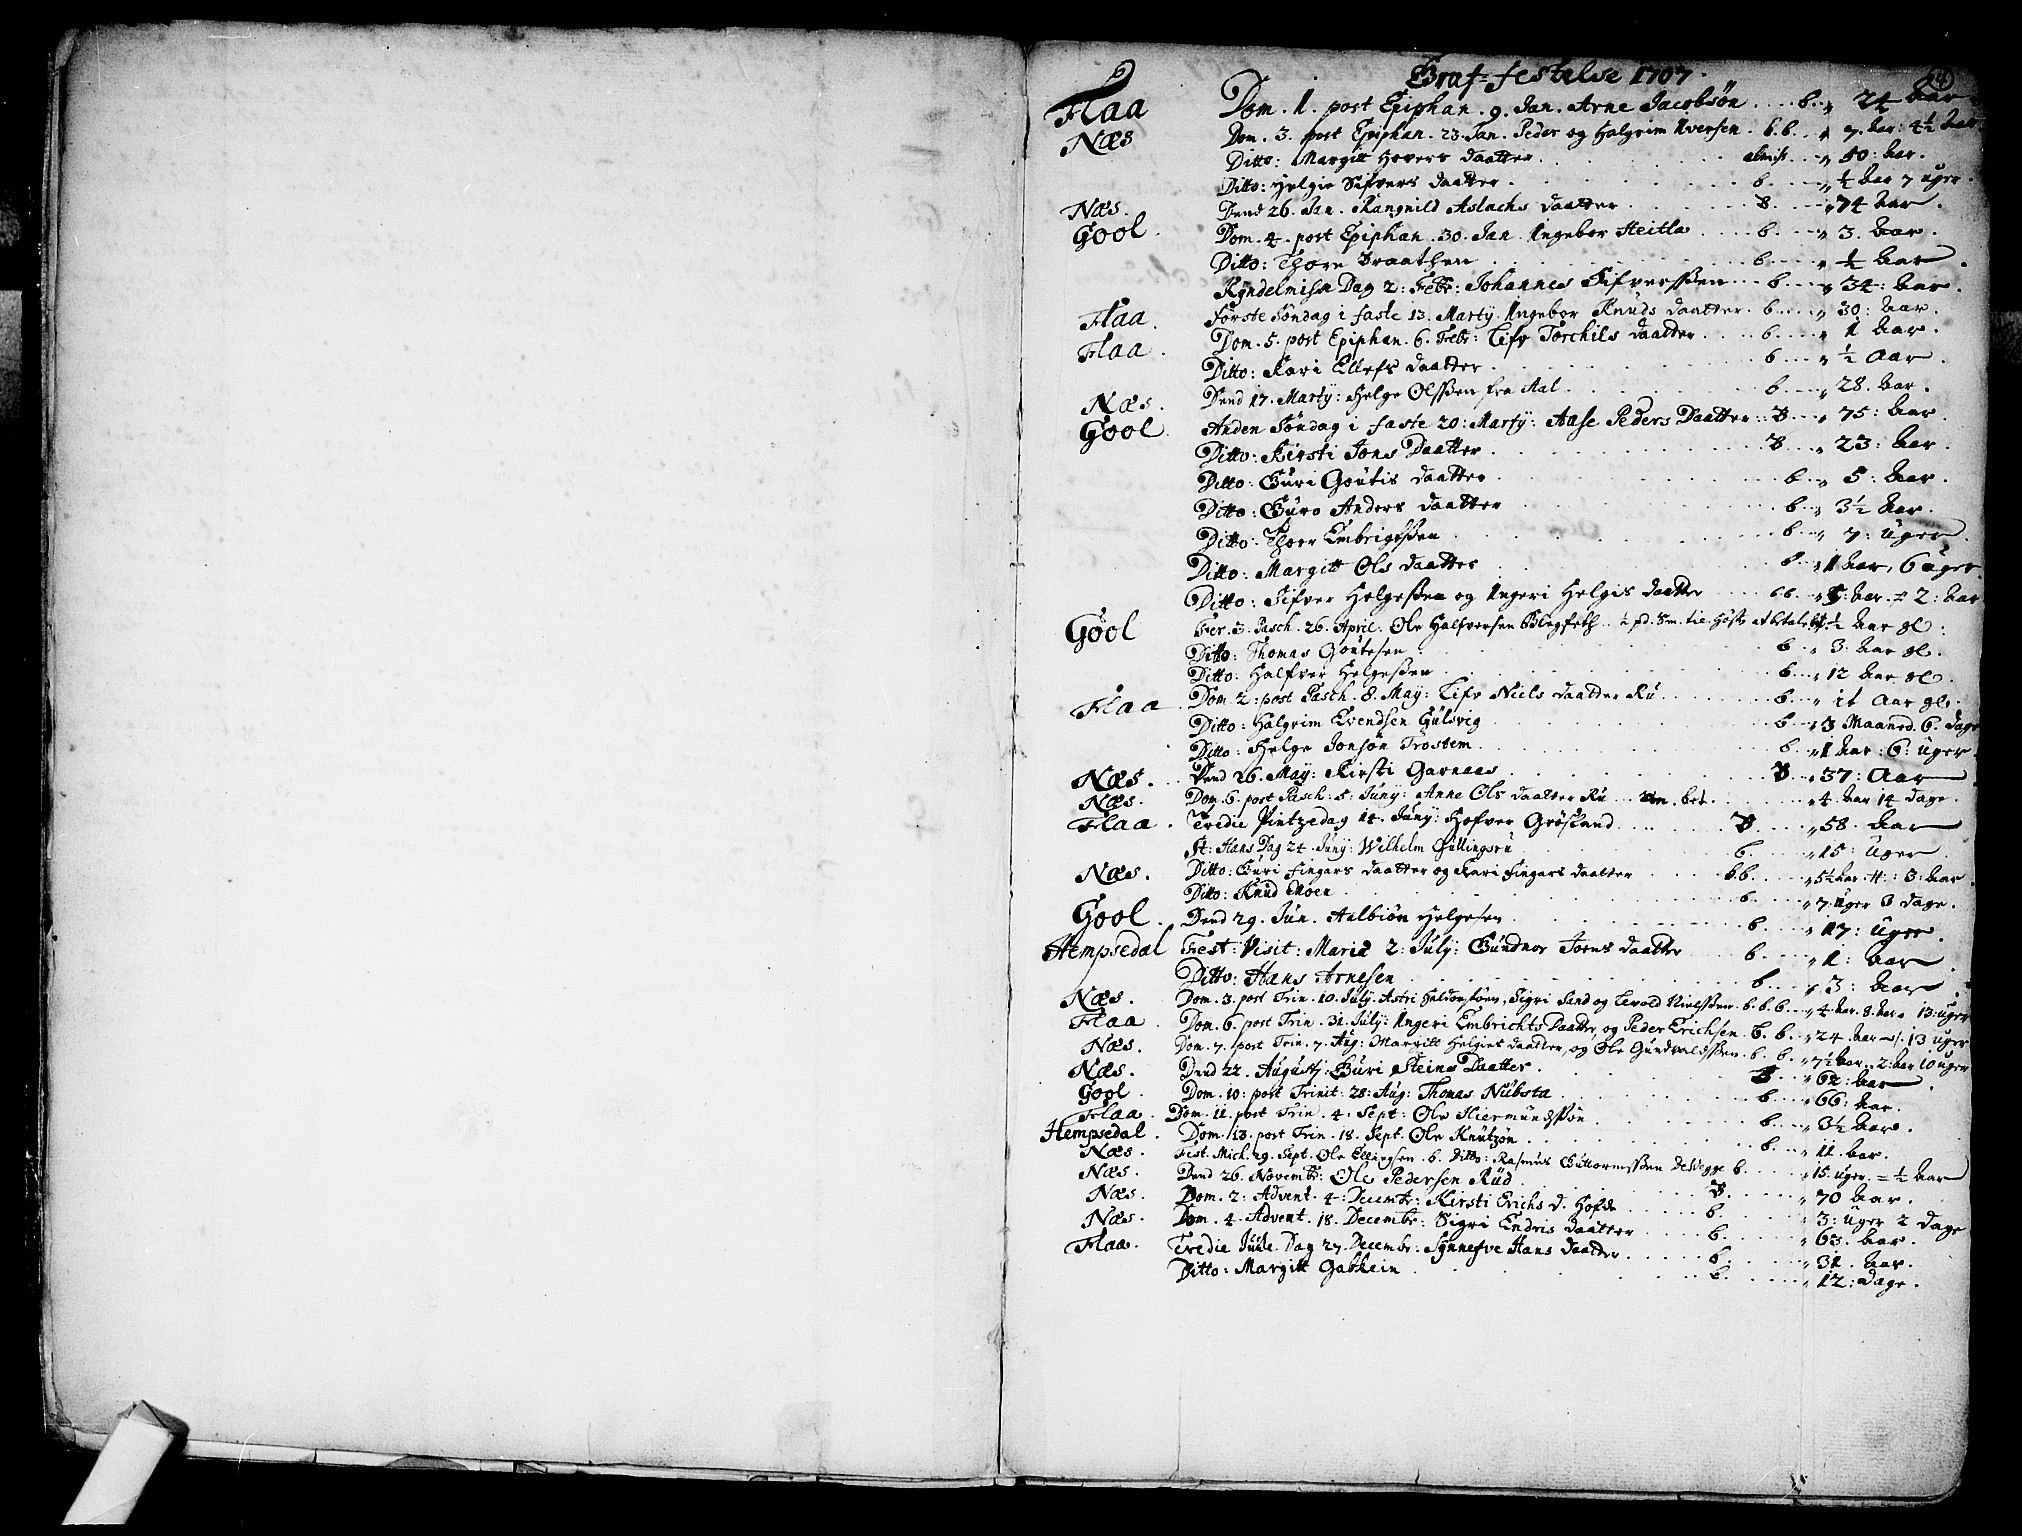 Graf-festelse 1707. 4
Flaa Dom. 1. post Epiphan. 9. Jan. Arne Jacobsøn .... b. „ 24 Aar
Næs Dom. 3. post Epiphan. 23. Jan. Peder og Halgrim Iversen . b.b. „ 7. Aar: 4½ Aar
Ditto: Margitt Hovers daatter. almiss „ 50: Aar.
Ditto: Helgie Sifvers daatter. b. „ ½ Aar 7 uger.
Næs. Dend 26. Jan. Rangnild Aslachs daatter B „ 74 Aar.
Gool. Dom. 4. post Epiphan. 30. Jan. Ingebor Heitla b. „ 3. Aar.
Ditto: Thore Braathen b. „ ½ Aar.
Kyndelmisse Dag 2: Febr: Johannes Sifverssen b. „ 34: Aar.
Flaa. Første Søndag i faste 13. Martij. Ingebor Knuds daatter. b. „ 30: Aar.
Flaa. Dom. 5. post Epiphan. 6. Febr: Lifv Torchils daatter b. „ 1 Aar.
Ditto: Kari Ellefs daatter b. „ ½ Aar.
Næs. Dend 17. Martij: Helge Olssen fra Aal b. „ 28. Aar.
Gool. Anden Søndag i faste 20: Martij: Aase Peders Daatter B „ 75: Aar.
Ditto: Kirsti Jons Daatter B „ 23: Aar.
Ditto: Guri Goutis daatter b. „ 5: Aar.
Ditto: Guro Anders daatter b. „ 3½ Aar.
Ditto: Thor Embrigssen b. „ 7: uger.
Ditto: Margitt Ols daatter b. „ 1 Aar, 6 uger.
Ditto: Sifver Helgessen og Ingeri Helgis daatter bb. „ 5: Aar. = 2: Aar
Gool Fer. 3. Pasch. 26. April. Ole Halfversen ½ pd. Sm. til Høste at betale „ ½ Aar gl:
Ditto: Thomas Goutesen b. „ 3. Aar gl.
Ditto: Halfver Helgessen b. „ 12 Aar gl.
Flaa Dom. 2: post Pasch. 8. May: Lifv Niels daatter Ru b. „ 11 Aar gl.
Ditto: Halgrim Svendsen Gulsvig b. „ 3 Maaned 6. dage
Ditto: Helge Jonsøn Trøstem b. „ 1 Aar: 6: uger.
Næs. Dend 26. May: Kirsti Garnaas B „ 37: Aar
Næs. Dom. 6. post Pasch: 5: Juny: Anne Ols daatter Ru bet. „ 4. Aar 14 dage.
Flaa. Tredie Pintzedag 14. Juny: Hofver Grøsland B. „ 58. Aar
St: Hans Dag 24. Juny: Wilhelm Gullingsru b. „ 15: uger
Næs. Ditto: Guri Fingars daatter og Kari Fingars daatter b.b. „ 5½ Aar. 3: Aar
Ditto: Knud Moen b. „ 7. uger 6 dage.
Gool. Dend 29. Jun. Aalbiøn Helgesen b. „ 17: uger.
Hempsedal Fest: Visit: Mariæ 2. July: Gundnor Joens daatter b. „ 1: Aar
Ditto: Hans Arnesen b. „ 3: Aar
Næs. Dom. 3. post Trin. 10. July. Astri, Sigri Sand og Levold Nielssen. b. b. b. „ 4 Aar. 8. Aar. 13: uger
Flaa. Dom. 6. post Trin. 31. July: Ingeri Embrichts Daatter, og Peder Erichsen b. b. „ 24. Aar 13 uger
Næs. Dom. 7. post Trin. 7. Aug: Margitt Helgies daatter, og Ole Gundvaldssen b. b. „ 7½ Aar. 2: Aar 10 uger
Næs. Dend 22. Augusti: Guri Steins Daatter. B „ 62: Aar
Gool. Dom. 10: post Trinit. 28: Aug: Thomas Nubsta b „ 66: Aar.
Flaa. Dom. 11. post Trin. 4. Sept: Ole Hiermundssøn b. „ 3½ Aar.
Hempsedal. Dom. 13. post Trin. 18. Sept. Ole Knutzøn b. „ 11. Aar.
Næs. Fest. Mich. 29. Sept. Ole Ellingsen. b. Ditto: Rasmus Guttormssen b. „ 15. uger. = ½ Aar
Næs. Dend 26. Novembr: Ole Pedersen Rud B. „ 70 Aar.
Næs. Dom. 2: Advent. 4: Decembr: Kirsti Erichs d. Hofde b. „ 3: uger 2 dage
Næs. Dom. 4. Advent. 18. Decembr: Sigri Endris daatter b. „ 63. Aar.
Flaa. Tredie Jule Dag 27. Decembr: Synnefve Hans daatter b. „ 31. Aar.
Ditto: Margitt b. „ 12: dage.